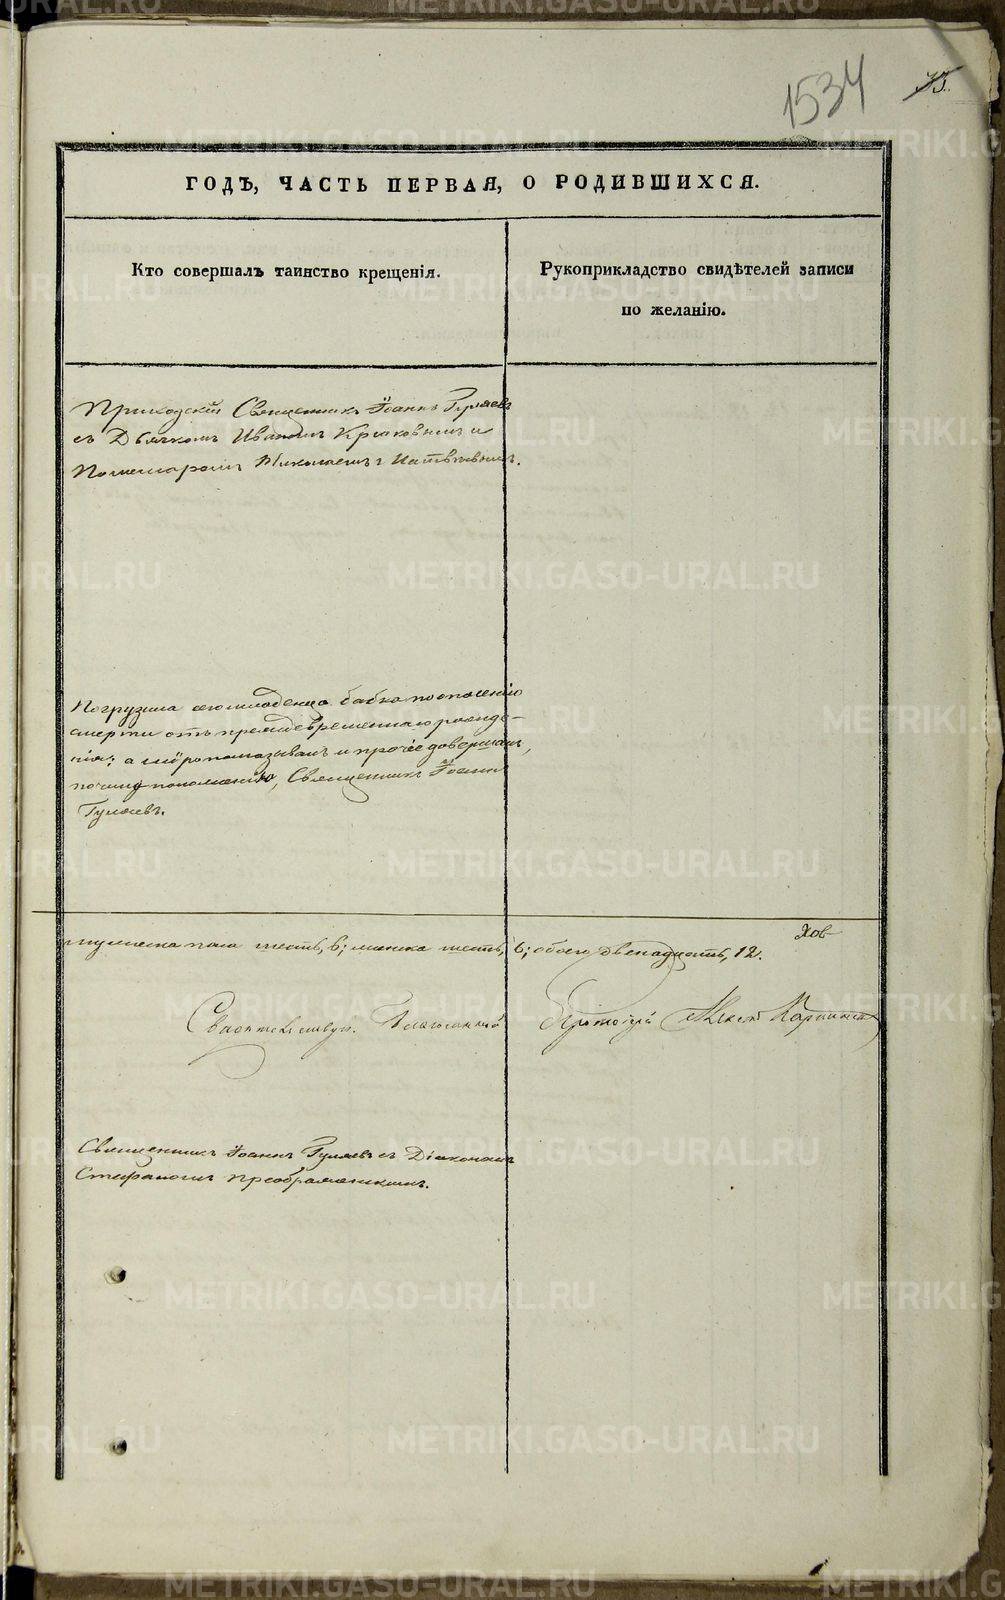 1534
73.
ГОДЪ, ЧАСТЬ ПЕРВАЯ, О РОДИВШИХСЯ.
Кто совершалъ таинство крещенія.
Рукоприкладство свидѣтелей записи
по желанію.
Приходскій Священникъ Іоаннъ Гуляевъ
съ Дьячкомъ Иваномъ Крюковымъ и
Пономаремъ Николаемъ
Погрузила сего младенца бабка по опасенію
смерти отъ преждевременнаго рожде-
нія; а мѵропомазывалъ и прочее довершалъ,
по чиноположенію, Священникъ Іоаннъ
Гуляевъ.
мужеска пола шесть, 6; женска шесть, 6; обоего двенадцать, 12.
Свидѣтельствую. Благочинный Протоіерей
Священникъ Іоаннъ Гуляевъ съ Діакономъ
Стефаномъ Преображенскимъ.
METRIKI.GASO-URAL.RU